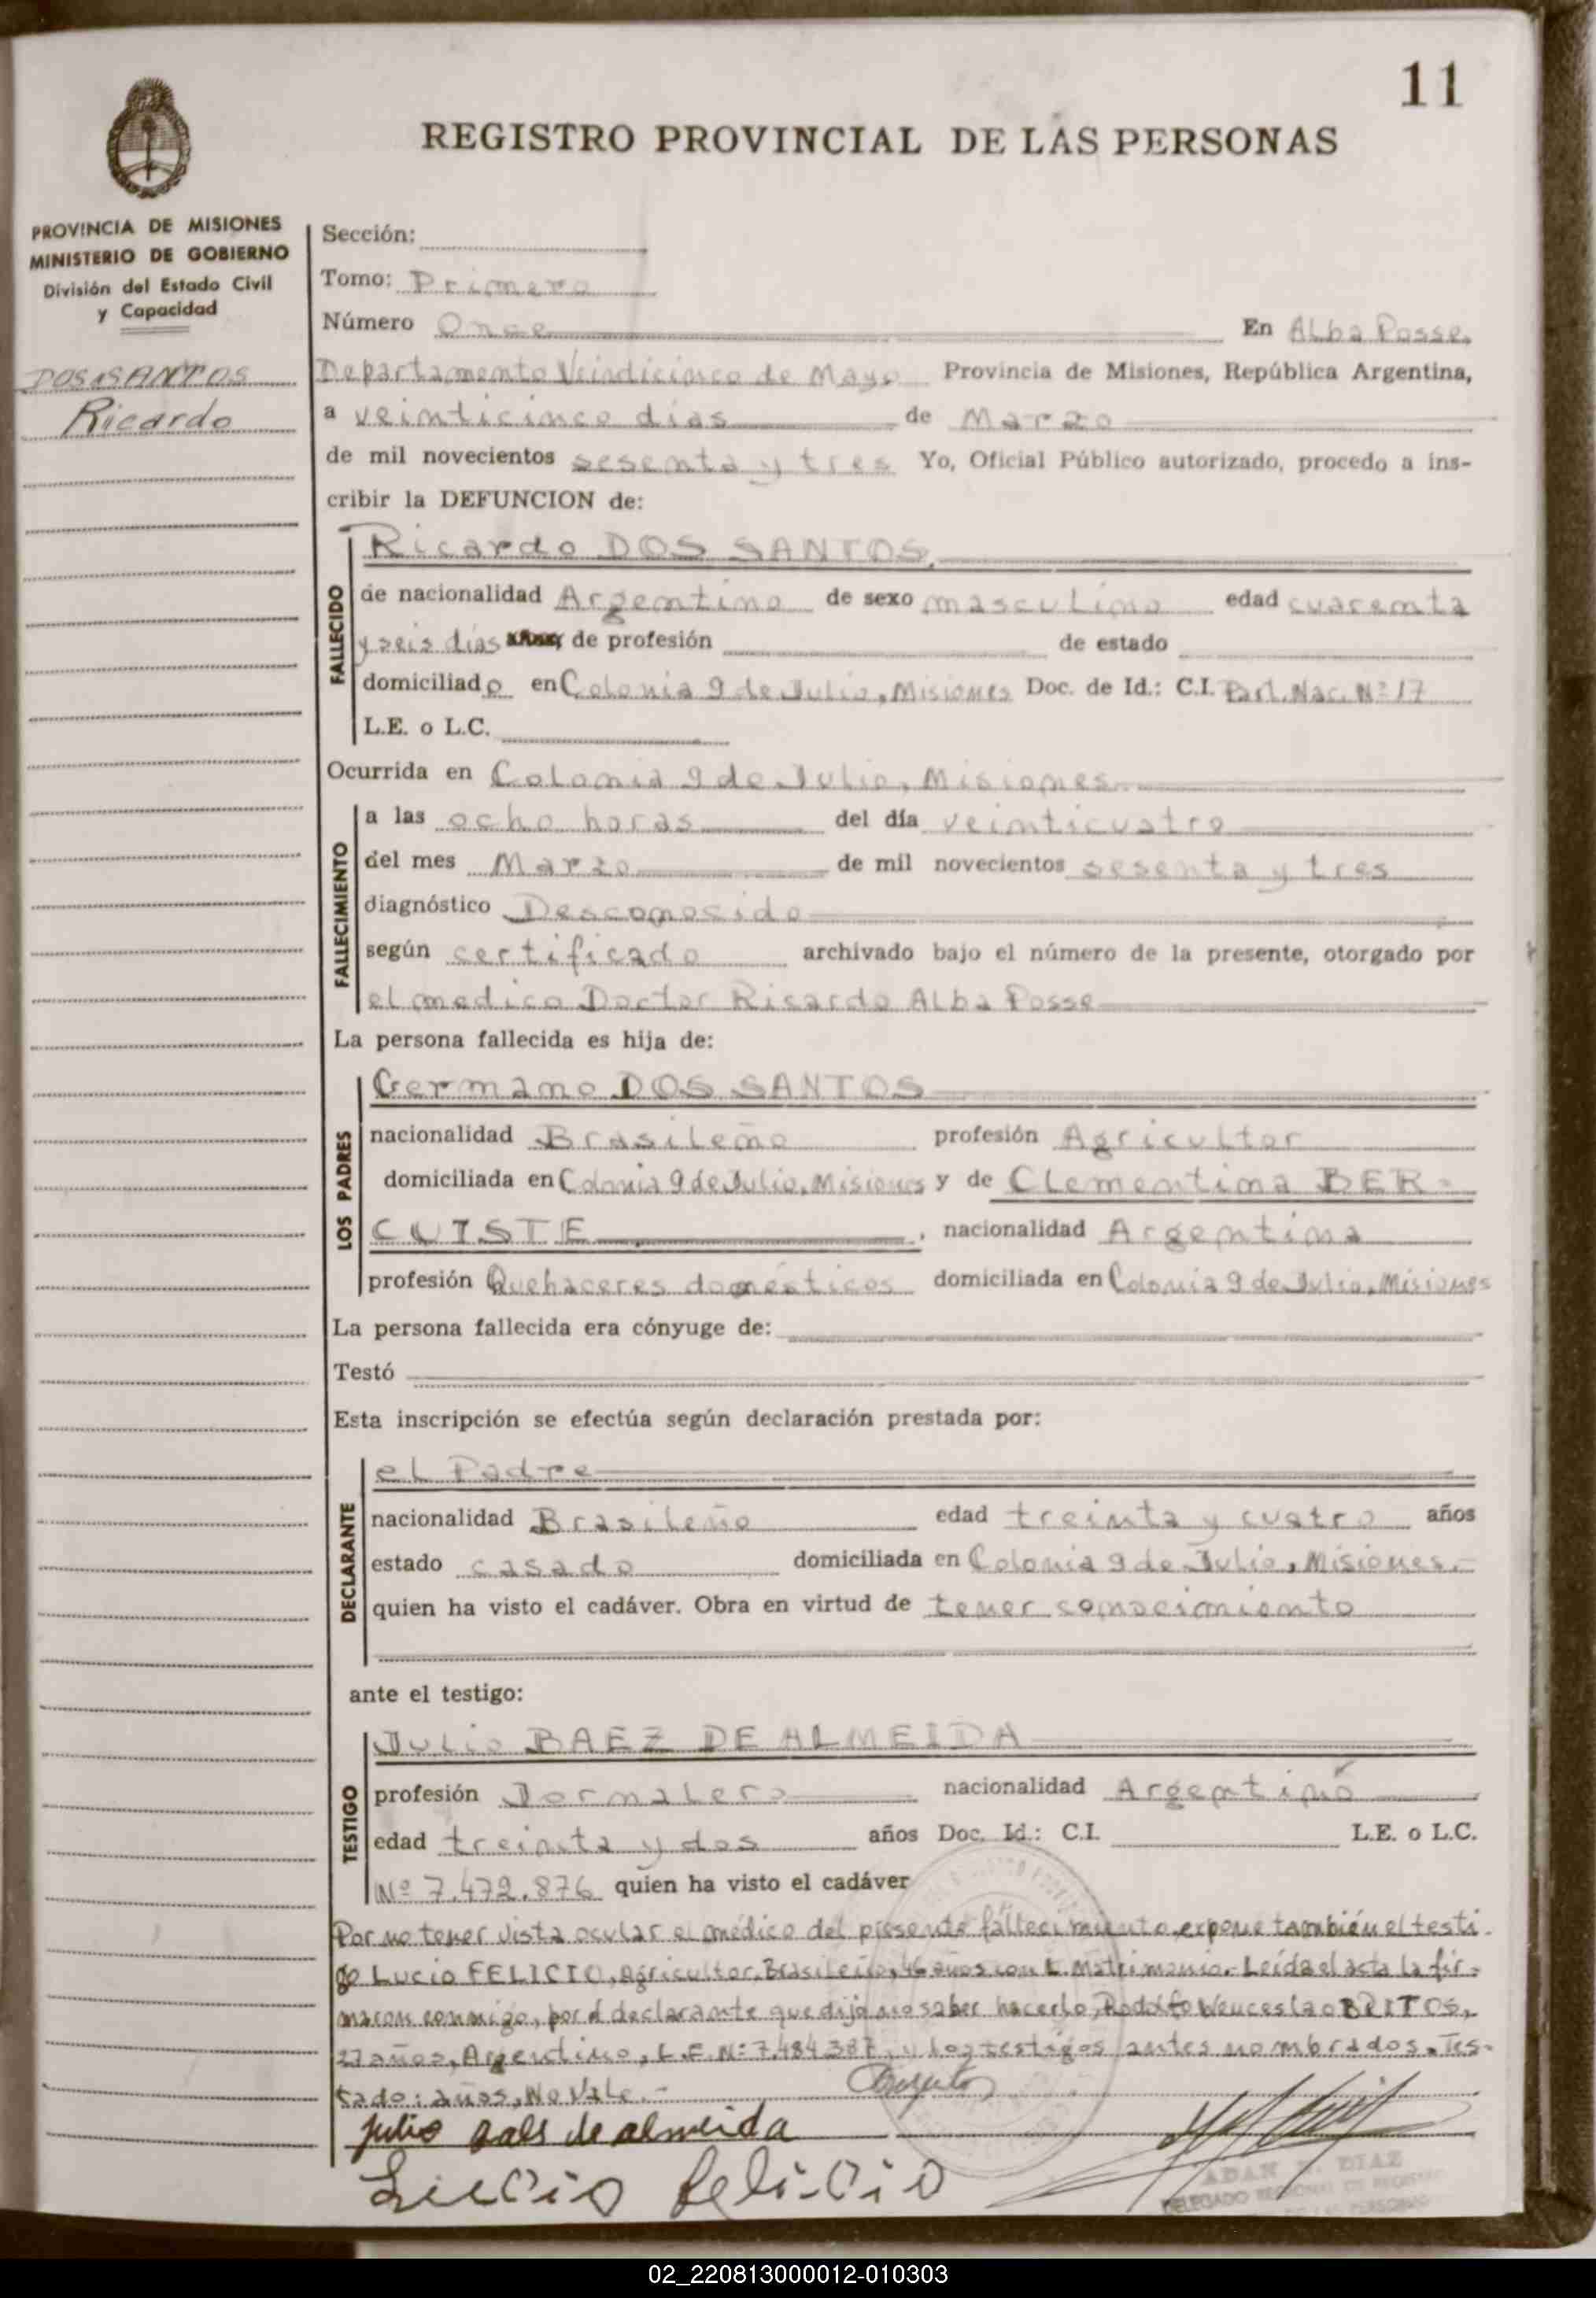 11
REGISTRO PROVINCIAL DE LAS PERSONAS
PROVINCIA DE MISIONES
MINISTERIO DE GOBIERNO
División del Estado Civil
y Capacidad
DOS SANTOS
Ricardo
Sección:
Tomo: Primero
Número Once En Alba Posse,
Departamento Veindicinco de Mayo Provincia de Misiones, República Argentina,
a veinticinco días de Marzo
de mil novecientos sesenta y tres Yo, Oficial Público autorizado, procedo a ins-
cribir la DEFUNCION de:
FALLECIDO
Ricardo DOS SANTOS,
de nacionalidad Argentino de sexo masculino edad cuarenta
y seis días de profesión de estado
domiciliado en Colonia 9 de Julio, Misiones Doc. de Id.: C.I. Part. Nac. Nº 17
L.E. o L.C.
Ocurrida en Colonia 9 de Julio, Misiones
FALLECIMIENTO
a las ocho horas del día veinticuatro
del mes Marzo de mil novecientos sesenta y tres
diagnóstico Desconocido
según certificado archivado bajo el número de la presente, otorgado por
el medico Doctor Ricardo Alba Posse
La persona fallecida es hija de:
LOS PADRES
Germano DOS SANTOS
nacionalidad Brasileño profesión Agricultor
domiciliada en Colonia 9 de Julio, Misiones y de Clementina BER-
CUISTE, nacionalidad Argentina
profesión Quehaceres domésticos domiciliada en Colonia 9 de Julio, Misiones
La persona fallecida era cónyuge de:
Testó
Esta inscripción se efectúa según declaración prestada por:
DECLARANTE
el Padre
nacionalidad Brasileño edad treinta y cuatro años
estado casado domiciliada en Colonia 9 de Julio, Misiones.-
quien ha visto el cadáver. Obra en virtud de tener conocimiento
ante el testigo:
TESTIGO
Julio BAEZ DE ALMEIDA
profesión Jornalero nacionalidad Argentino
edad treinta y dos años Doc. Id.: C.I. L.E. o L.C.
Nº 7.472.876 quien ha visto el cadáver
Por no tener vista ocular el médico del presente fallecimiento, expone también el testi-
go Lucio FELICIO, Agricultor, Brasileño, 46 años con L. Matrimonio.- Leída el acta la fir-
maron conmigo, por el declarante que dijo no saber hacerlo, Rodolfo Wenceslao BRITOS,
27 años, Argentino, L.E. Nº 7.484.387, y los testigos antes nombrados. Tes-
tado: años, No Vale.-
julio Baes de almeida
Luccio felicio
ADAN DIAZ
DELEGADO REGIONAL DE REGISTRO
DE LAS PERSONAS
02_220813000012-010303